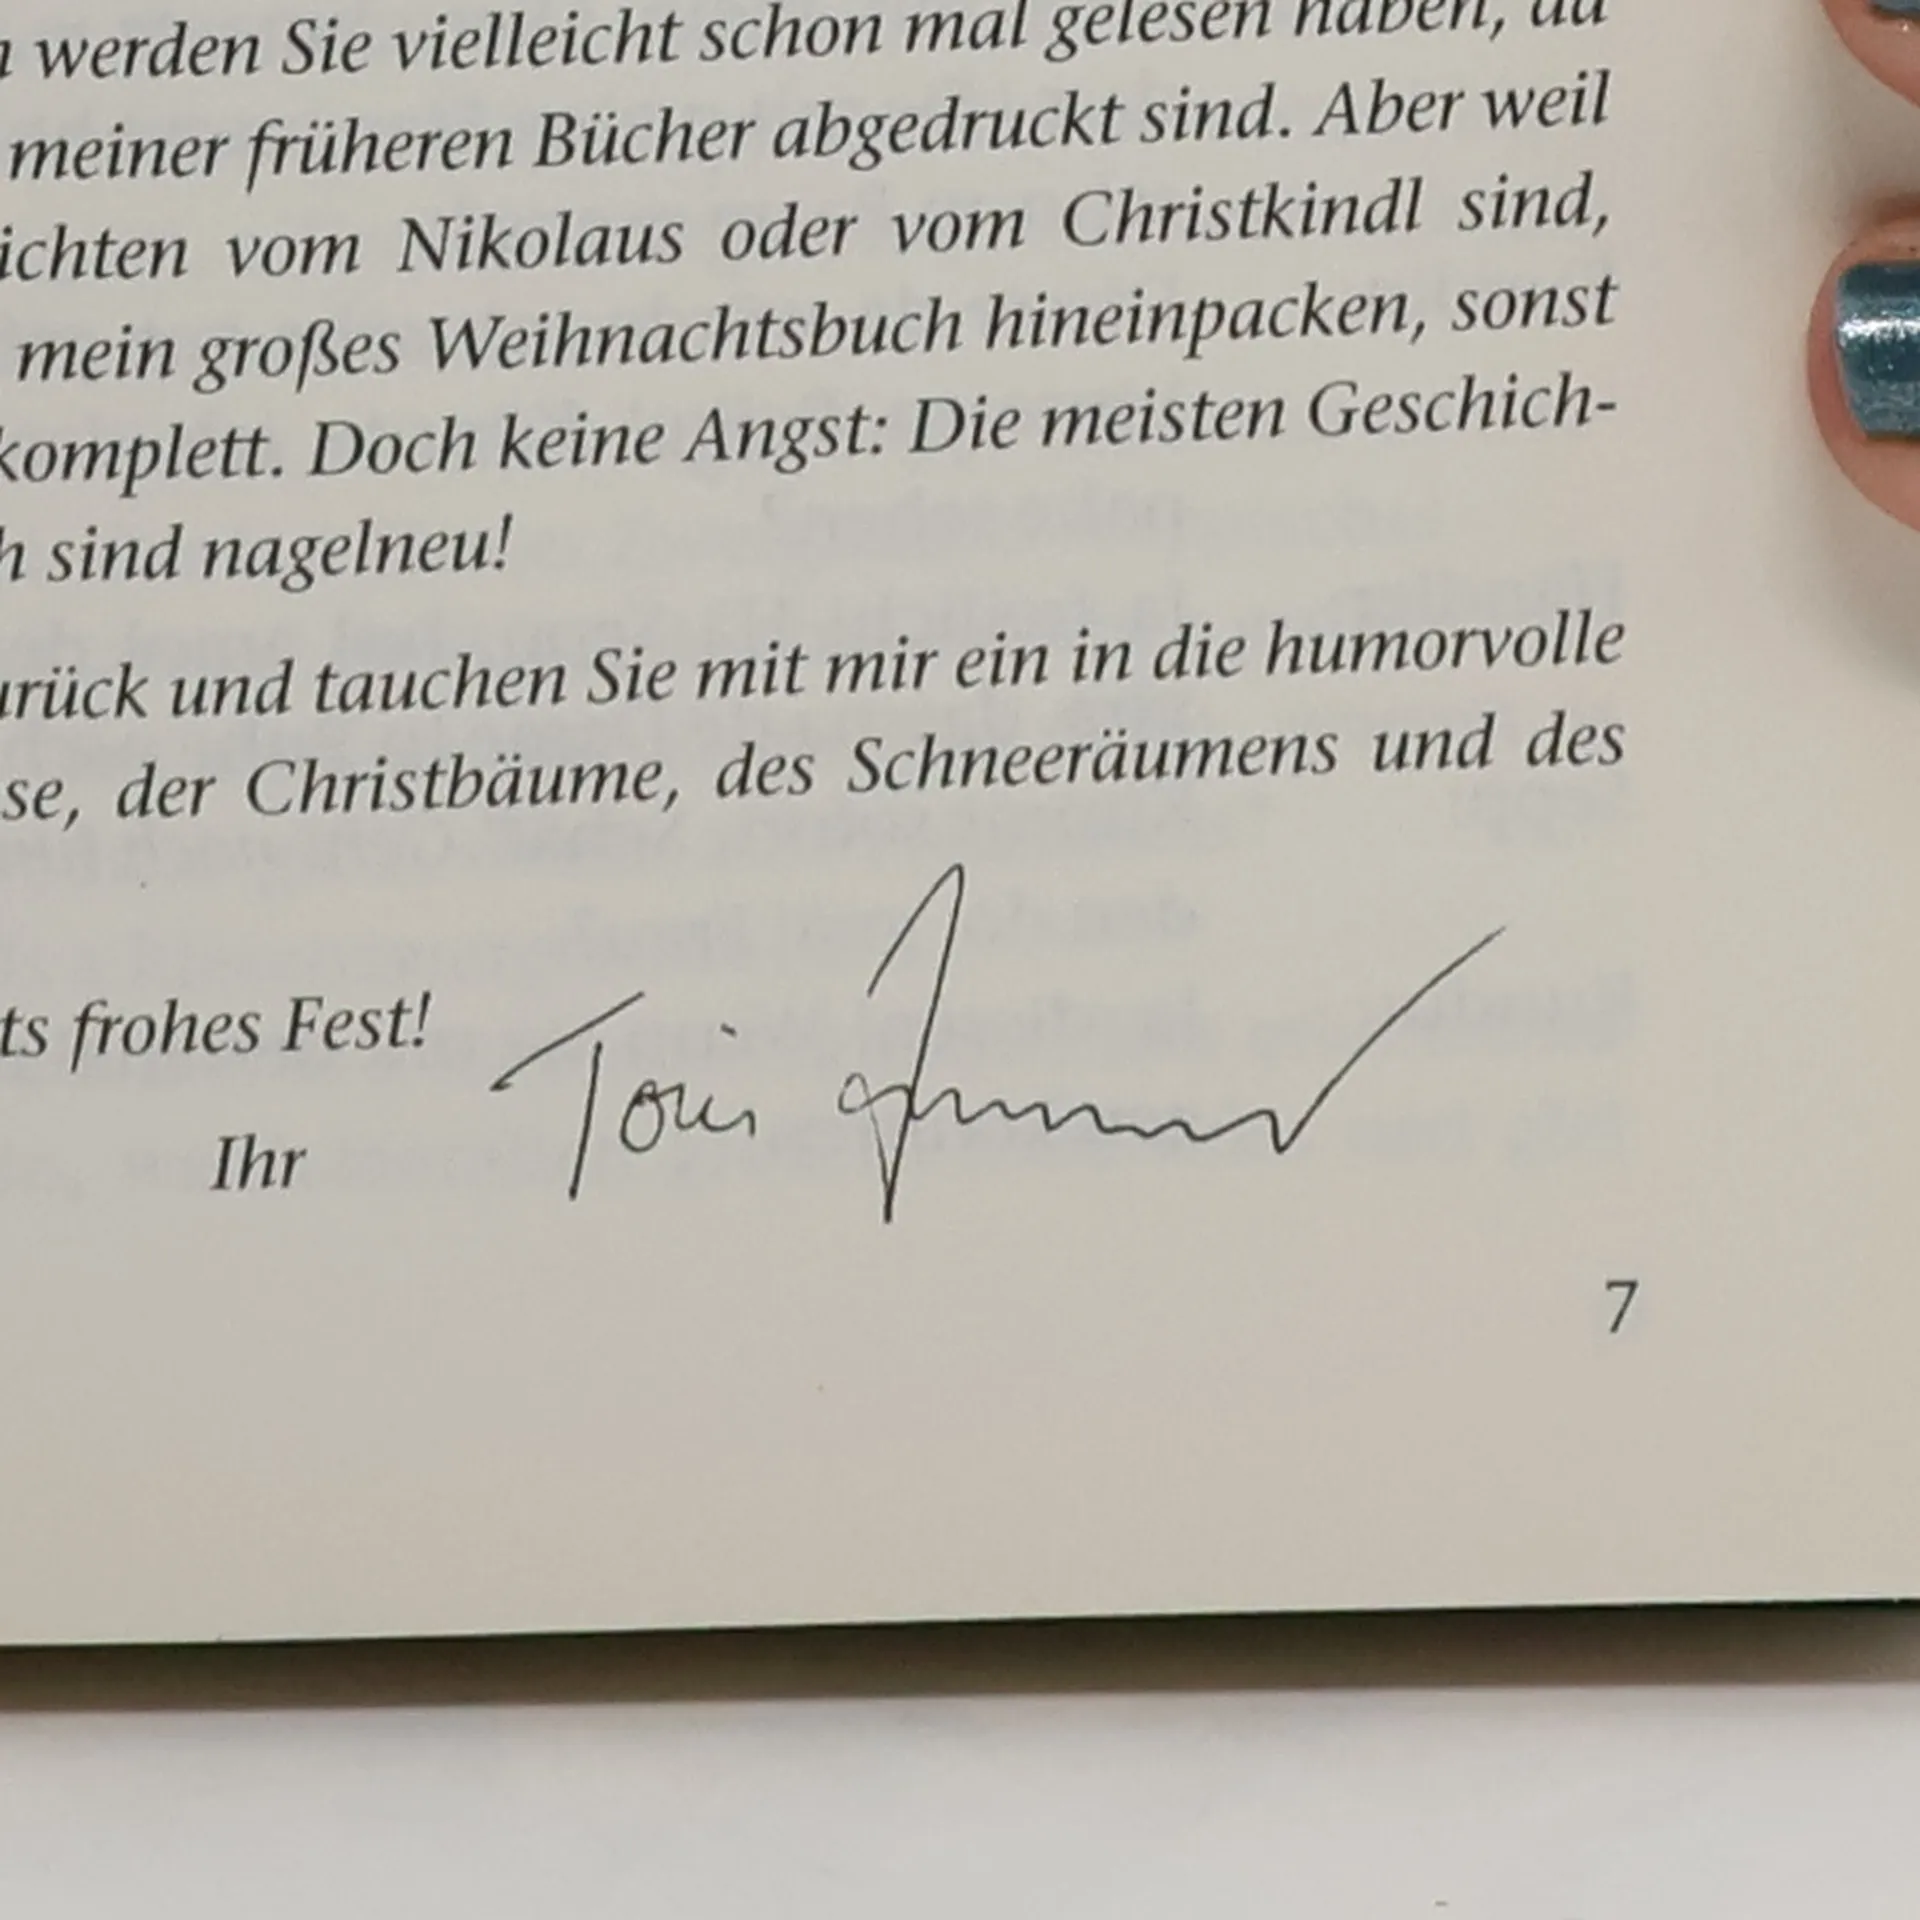 werden Sie vielleicht schon mal gelesen haben, da
meiner früheren Bücher abgedruckt sind. Aber weil
ichten vom Nikolaus oder vom Christkindl sind,
mein großes Weihnachtsbuch hineinpacken, sonst
komplett. Doch keine Angst: Die meisten Geschich-
h sind nagelneu!
urück und tauchen Sie mit mir ein in die humorvolle
se, der Christbäume, des Schneeräumens und des
ts frohes Fest!
Ihr Toni
7